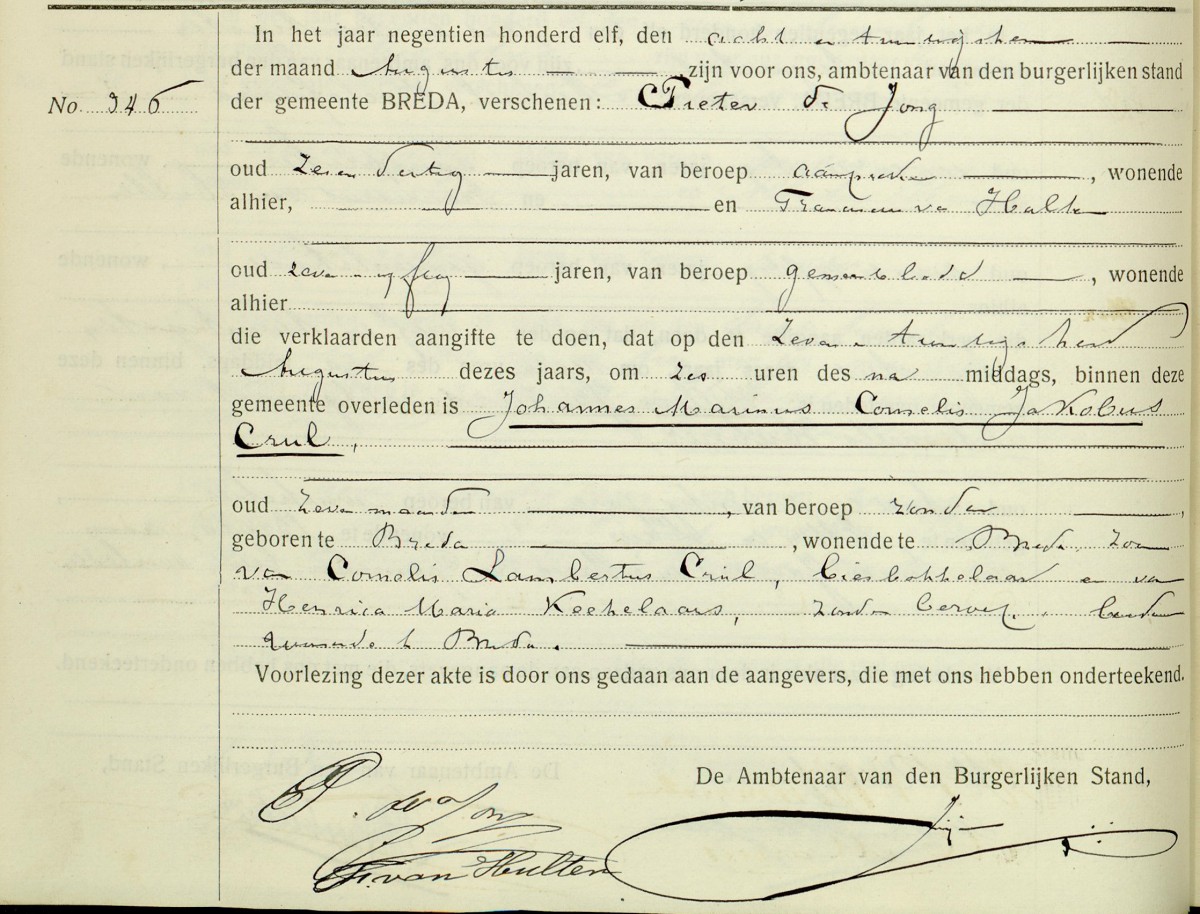 In het jaar negentien honderd elf, den acht en twintigsten
der maand Augustus zijn voor ons, ambtenaar van den burgerlijken stand
No. 346 der gemeente BREDA, verschenen: Pieter de Jong
oud zes en dertig jaren, van beroep aanspreker, wonende
alhier, en Franciscus van Hulten
oud zeven en vijftig jaren, van beroep gemeentebode, wonende
alhier
die verklaarden aangifte te doen, dat op den zeven en twintigsten
Augustus dezes jaars, om zes uren des na middags, binnen deze
gemeente overleden is Johannes Marinus Cornelis Jakobus
Crul,
oud zeven maanden, van beroep zonder,
geboren te Breda, wonende te Breda, zoon
van Cornelis Lambertus Crul, en van
Henrica Maria zonder beroep, beiden
wonende te Breda.
Voorlezing dezer akte is door ons gedaan aan de aangevers, die met ons hebben onderteekend.
De Ambtenaar van den Burgerlijken Stand,
P. de Jong
F. van Hulten